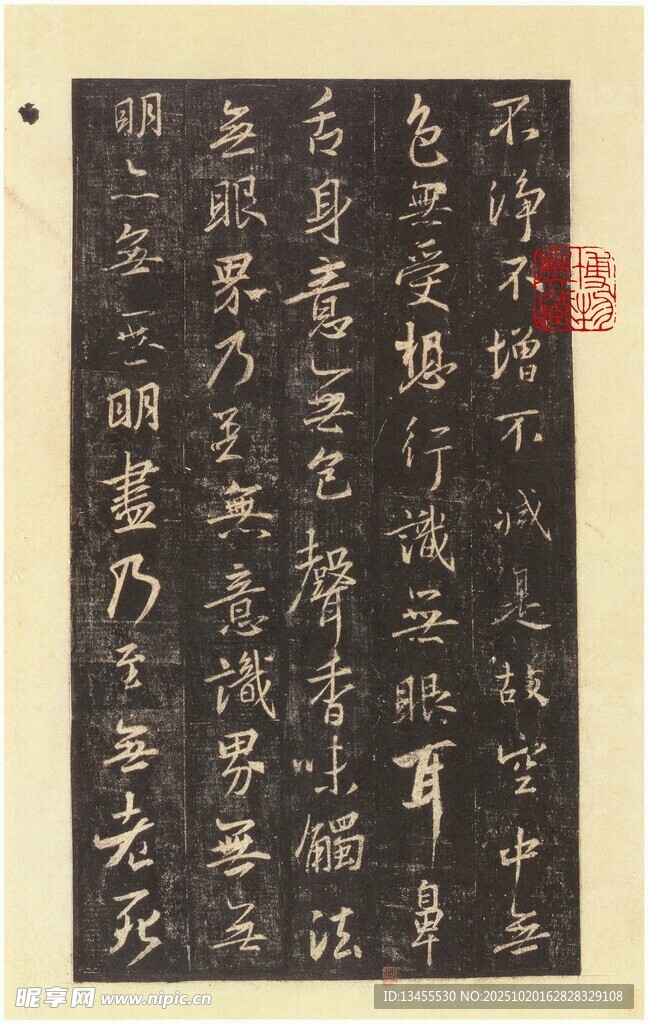 不淨不增不減是故空中無
色無受想行識無眼耳鼻
舌身意無色聲香味觸法
無眼界乃至無意識界無無
明亦無無明盡乃至無老死
博物
昵享网 www.nipic.cn
ID:13455530 NO:20251020162828329108